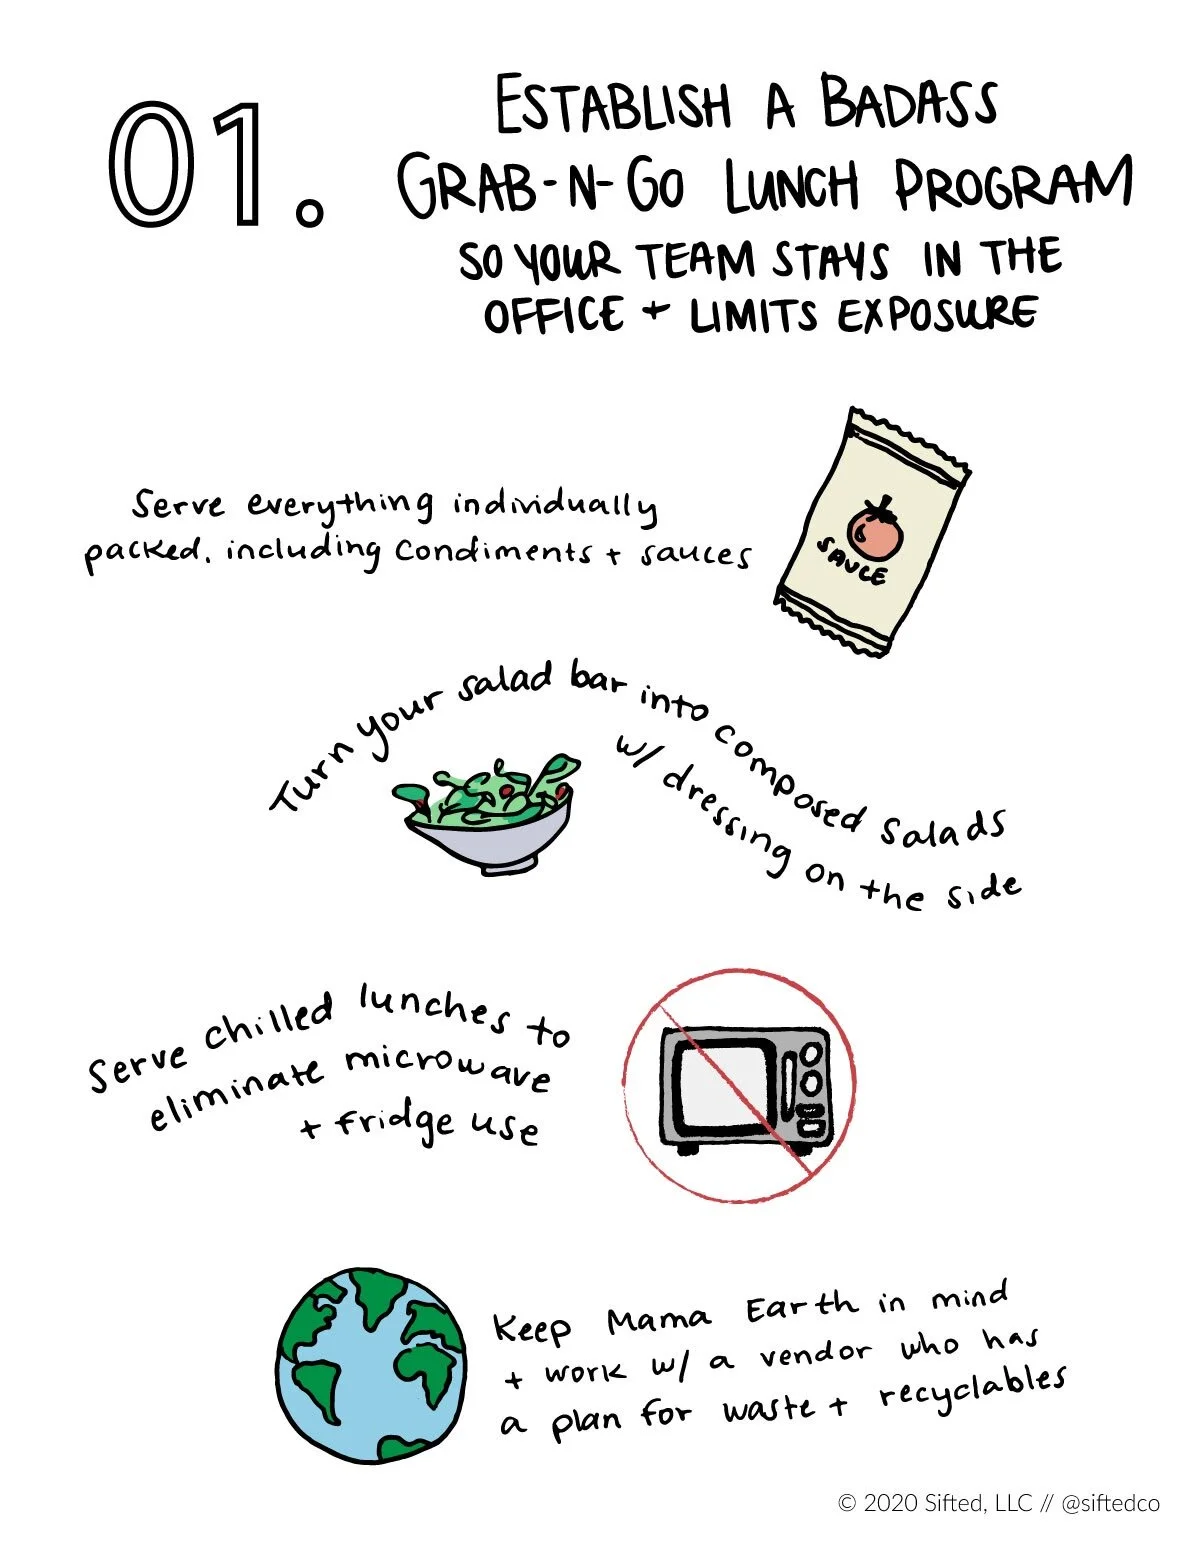 01.
ESTABLISH A BADASS
GRAB-N-GO LUNCH PROGRAM
SO YOUR TEAM STAYS IN THE
OFFICE + LIMITS EXPOSURE
Serve everything individually
packed, including condiments + sauces
SAUCE
Turn your salad bar into composed salads
w/ dressing on the side
Serve chilled lunches to
eliminate microwave
+ fridge use
Keep Mama Earth in mind
+ work w/ a vendor who has
a plan for waste + recyclables
© 2020 Sifted, LLC // @siftedco